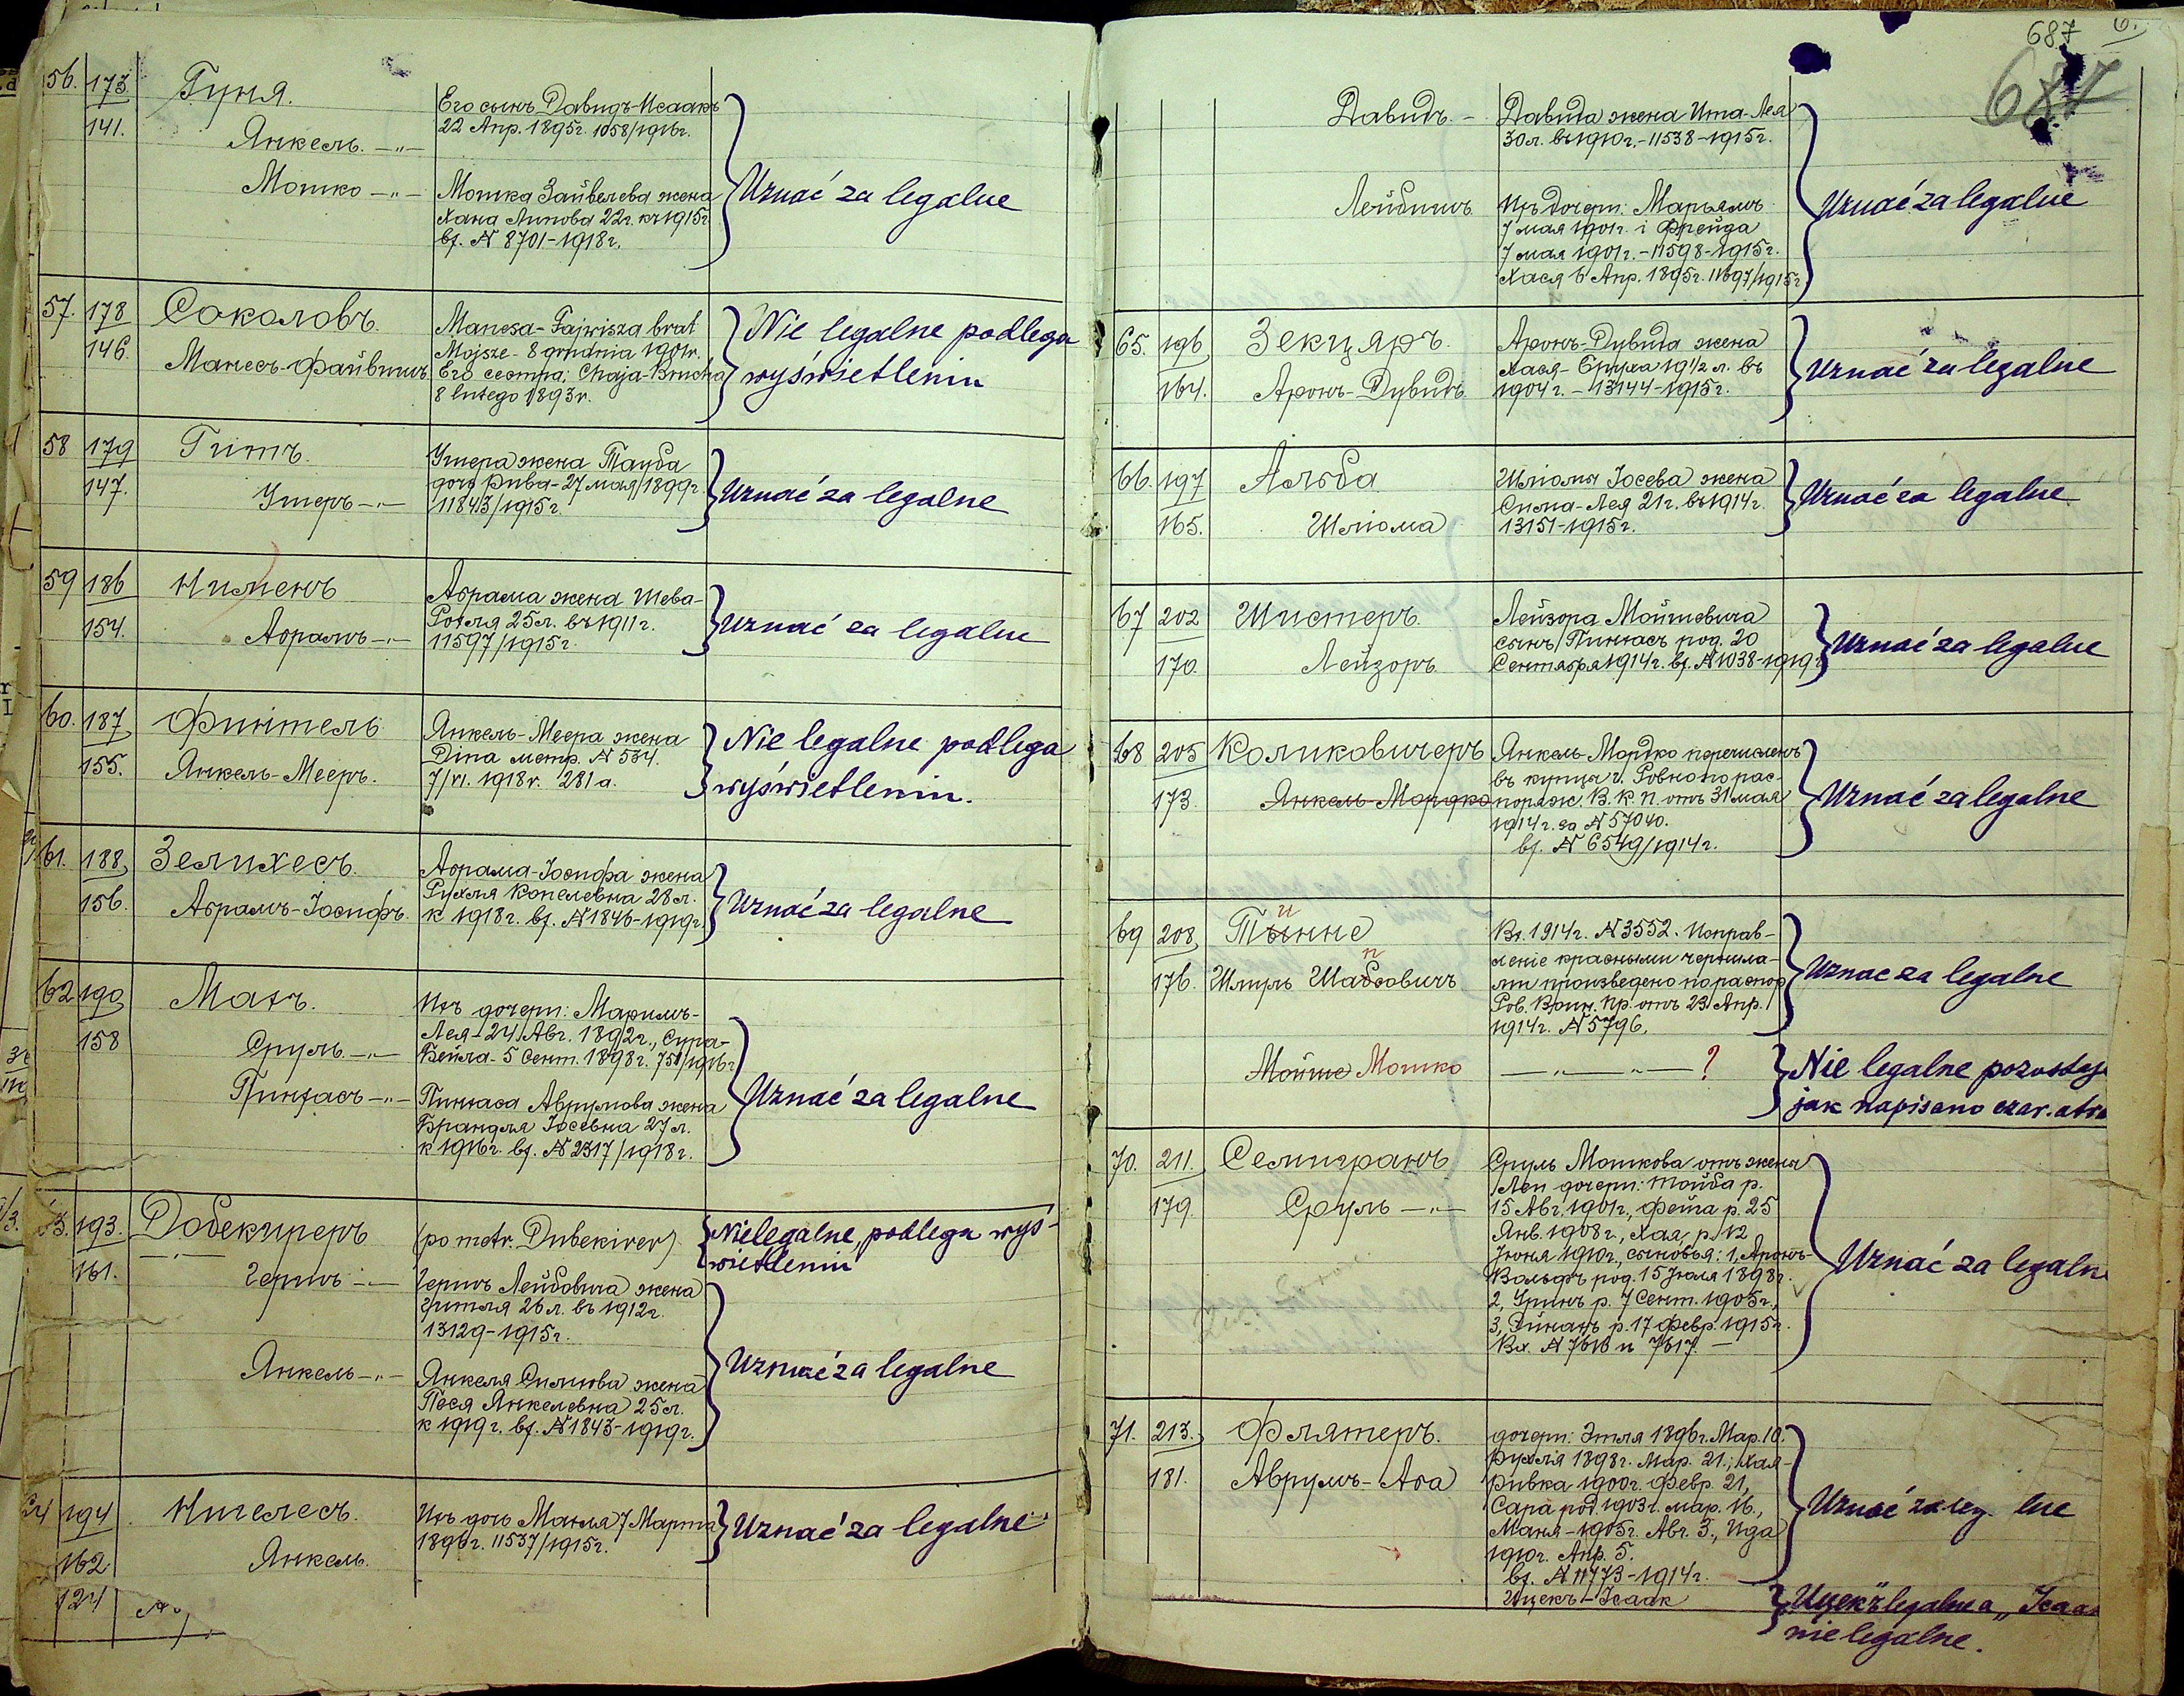 56. 173 Гуня. Его сынъ Давидъ-Исаакъ
141. Янкель. —"— 22 Апр. 1895г. 1058/1916г.
Мошко —"— Мошка Зайвелева жена Uznać za legalne
Хана Липова 22г. къ 1915г.
вх. N 8701-1918г.
57. 178 Соколовъ. Manesa-Fajwisza brat Nie legalne podlega
146. Манесъ-Файвишъ Mojsze - 8 grudnia 1901r. wyświetleniu
Его сестра: Chaja-Brucha
8 lutego 1893r.
58 179 Гитъ. Ушера жена Тауба
147. Ушеръ —"— дочь Рива - 27 мая 1899г. Uznać za legalne
11843/1915г.
59 186 Нименъ Абрама жена Шева-
154. Абрамъ —"— Рохля 25л. въ 1911г. Uznać za legalne
11597/1915г.
60. 187 Финтель Янкель-Меера жена Nie legalne podlega
155. Янкель-Мееръ. Dina метр. N 534. wyświetleniu.
7/VI. 1918r. 281a.
61. 188 Зелихесъ. Абрама-Іосифа жена
156. Абрамъ-Іосифъ. Рухля Копелевна 28л. Uznać za legalne
к 1918г. вх. N 1846-1919г.
62 190 Махъ. Ихъ дочери: Маріимъ-
158 Сруль —"— Лея - 24 Авг. 1892г., Сура-
Бейла - 5 Сент. 1898г.
Пинхасъ —"— Пинхаса Аврумова жена Uznać za legalne
Брандля Іосевна 27л.
к 1916г. вх. N 2317/1918г.
63. 193. Добекиреръ (po metr. Dubekirer) Nielegalne, podlega wyś-
161. Гершъ —"— wietleniu
Гершъ Лейбовича жена
Гитля 26л. въ 1912г.
13129-1915г.
Янкель —"— Янкеля Симхова жена Uznać za legalne
Песя Янкелевна 25л.
к 1919г. вх. N 1843-1919г.
64 194 Нигелесъ. Ихъ дочь Маня 7 Марта Uznać za legalne
162 Янкель. 1896г. 11537/1915г.
124
687
687
Давидъ. — Давида жена Ита-Лея
30л. въ 1910г. - 11538-1915г.
Лейбишъ Ихъ дочери: Марьямъ Uznać za legalne
7 мая 1901г. і Фрейда
7 мая 1901г. - 11598-1915г.
Хася 6 Апр. 1895г. 11697/1915г
65. 196 Зекцяръ. Аронъ-Дувида жена
164. Аронъ-Дувидъ Хася-Бруха 19 1/2 л. въ Uznać za legalne
1904г. - 13144-1915г.
66. 197 Альба Шліомы Іосева жена
165. Шліома Сима-Лея 21г. въ 1914г. Uznać za legalne
13151-1915г.
67 202 Шистеръ. Лейзора Мойшевича
170. Лейзоръ. сынъ Пинхасъ род. 20 Uznać za legalne
Сентября 1914г. вх. N 1038-1919г.
68 205 Коликовичеръ Янкель-Мордко перечисленъ
173. Янкель-Мордко въ купцы г. Ровно по рас-
поряж. В. К. П. отъ 31 мая Uznać za legalne
1914г. за N 57040.
вх. N 6549/1914г.
69 208 Тынне и Вх. 1914г. N 3552. Исправ-
176. Шмуль Шабсовичъ п леніе красными чернила-
ми произведено по распор. Uznac za legalne
Ров. Воин. Пр. отъ 23 Апр.
1914г. N 5796.
Мойше Мошко —"— —"— ? Nie legalne pozostaje
jak napisano czar. atra
70. 211. Селигранъ Сруль Мошкова отъ жены
179. Сруль —"— Леи дочери: Тойба р.
15 Авг. 1901г., Фейга р. 25
Янв. 1908г., Хая, р. 12
Іюня 1910г., сыновья: 1, Аронъ- Uznać za legalne
Вольфъ род. 15 Іюля 1898г.
2, Уринъ р. 7 Сент. 1905г.,
3, Хинанъ р. 17 Февр. 1915г.
Вх. N 7616 и 7617. —
71. 213. Флятеръ. дочери: Этля 1896г. Мар. 10.
181. Аврумъ-Аба Рухля 1898г. Мар. 21.; Хая-
Ривка 1900г. Февр. 21,
Сара род. 1903г. мар. 16., Uznać za leg lne
Маня - 1905г. Авг. 3., Ида
1910г. Апр. 5.
вх. N 11773-1914г.
Ицекъ-Исаак „Ицекъ" legalne a „Isaa
nie legalne.